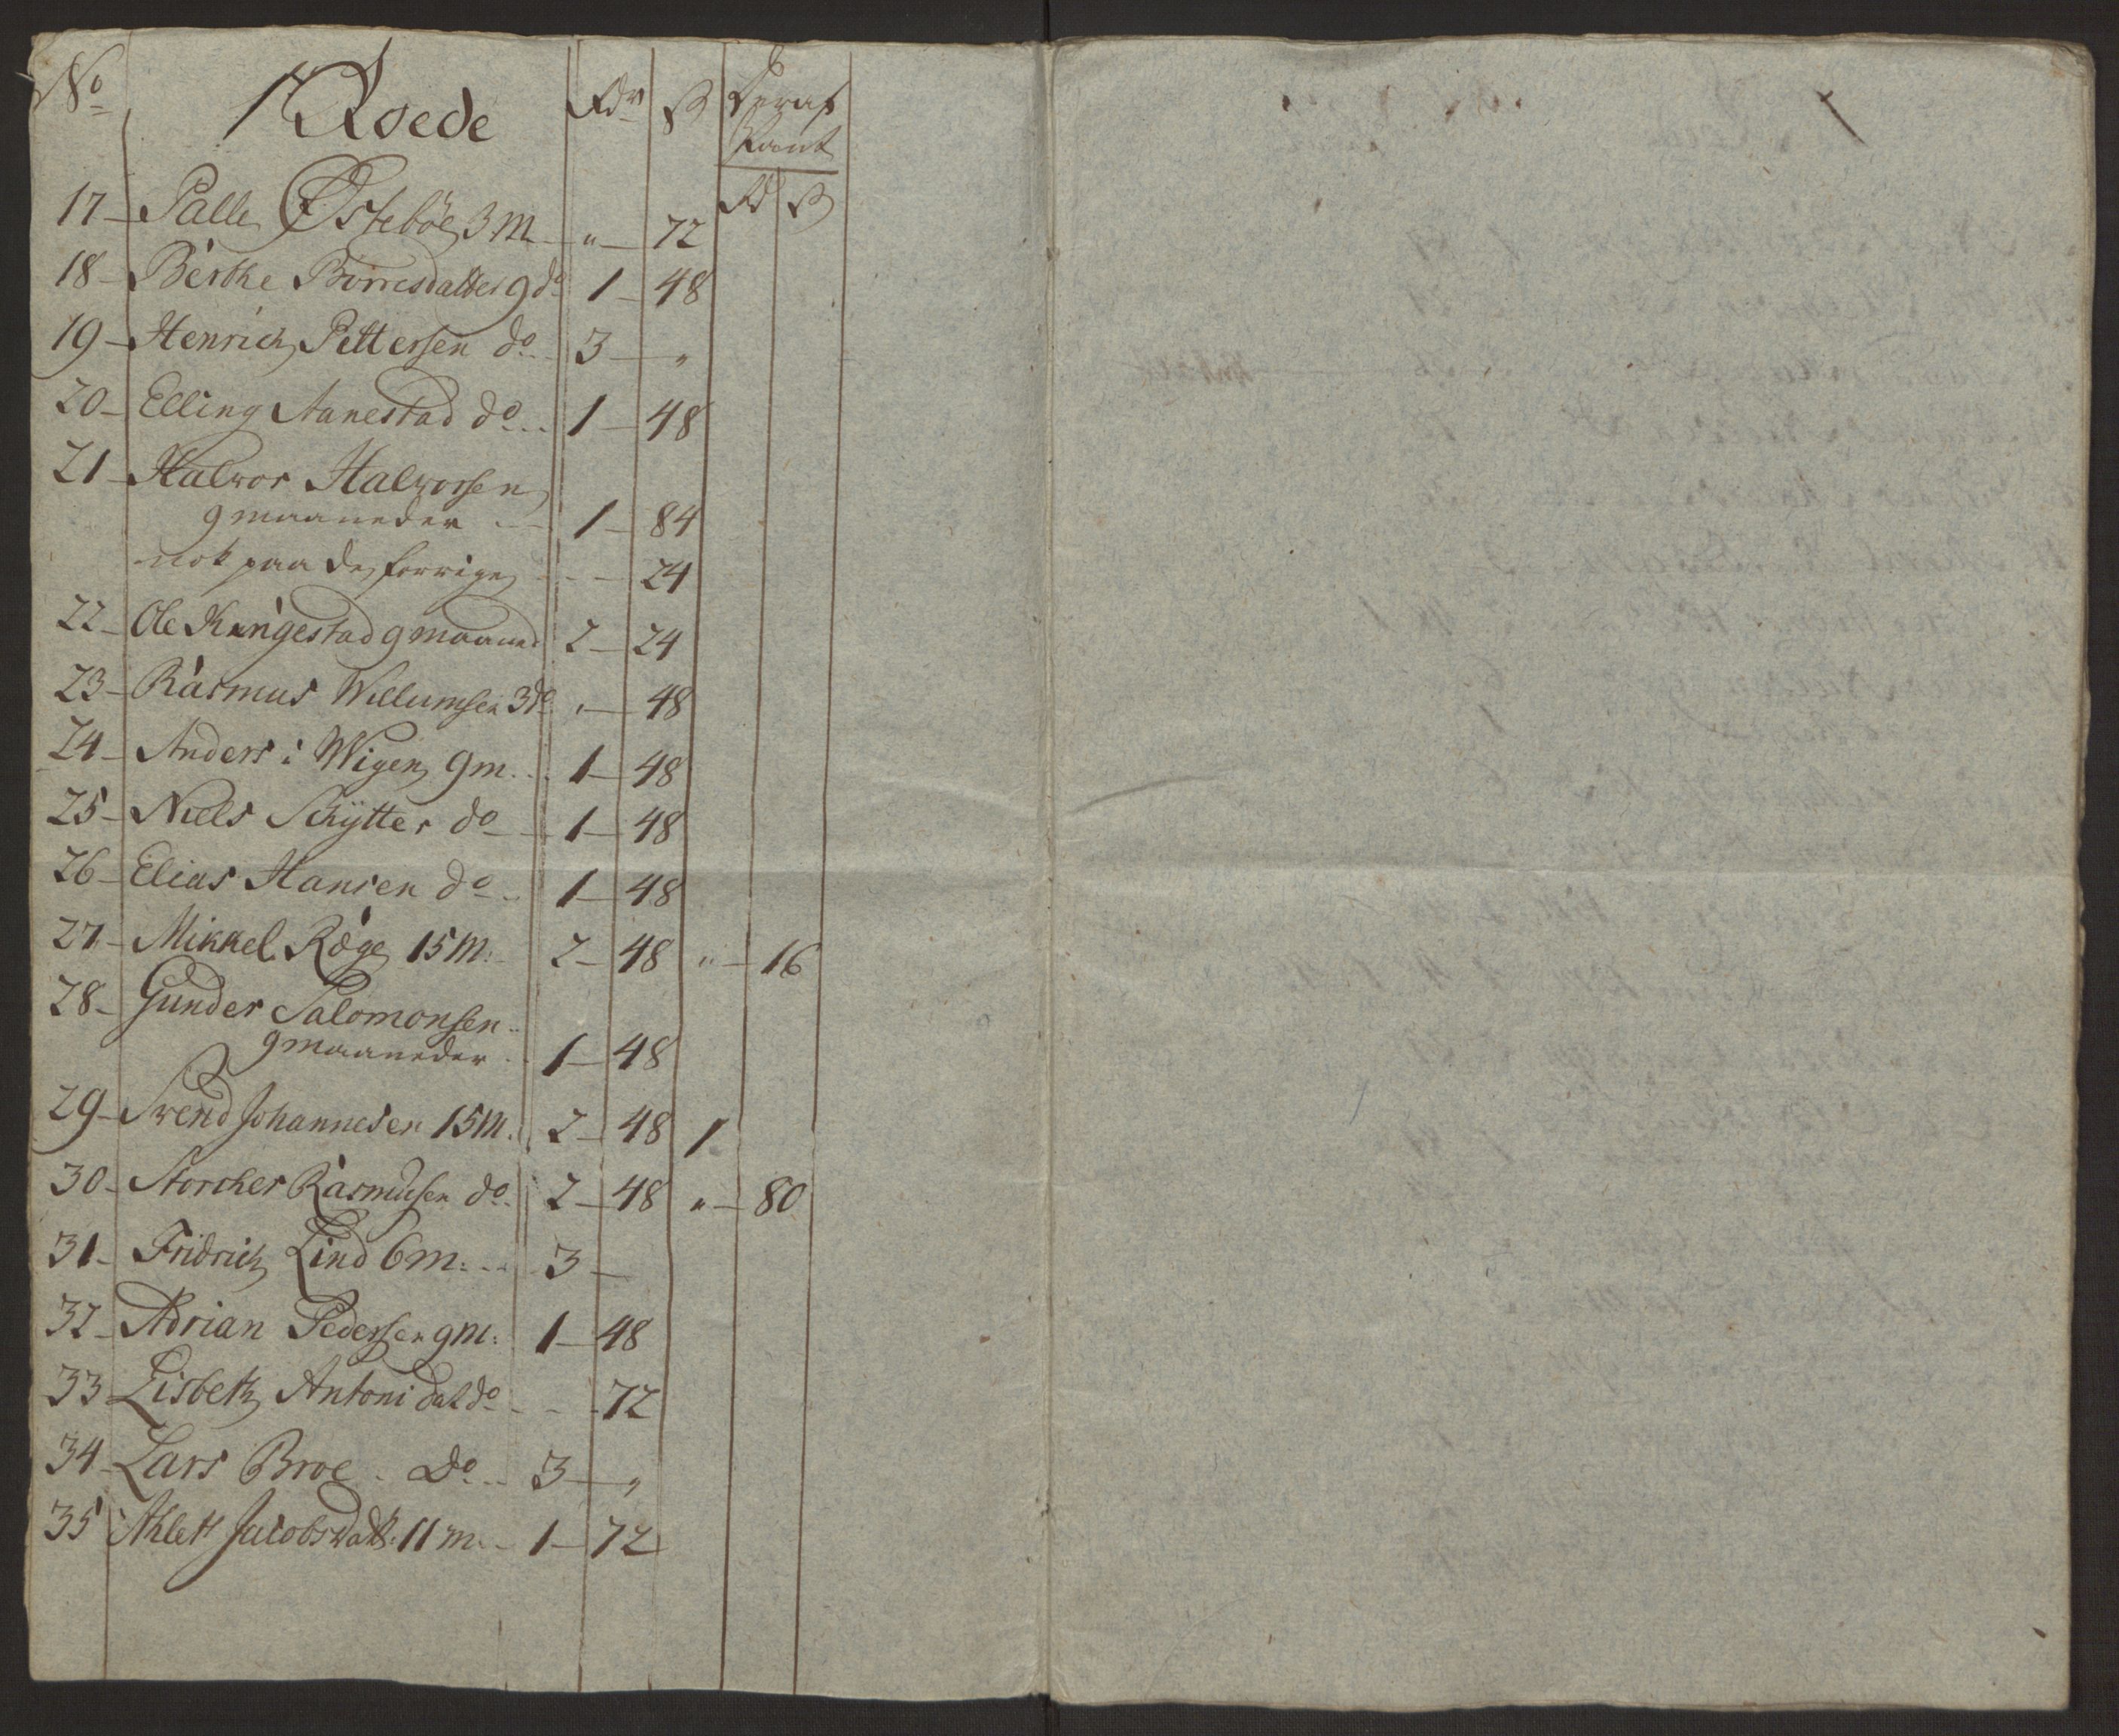 No 1 Roede Rdr ß Deraf
Pant
Rd ß
17 - Palle Østebøe 3 M - " - 72
18 - Berthe Borresdatter 9 do 1 - 48
19 - Henrich Pettersen do .. 3 - "
20 - Elling Aanestad do ... 1 - 48
21 - Halvor Halvorsen
9 maaneder .. - 1 - 84
nok paa de forrige - - - 24
22 - Ole Kingestad 9 maaned 2 - 24
23 - Rasmus Willumsen 3 do " - 48
24 - Anders i Wigen 9 m. .. 1 - 48
25 - Niels Schytter do - - 1 - 48
26 - Elias Hansen do .. 1 - 48
27 - Mikkel Røge 15 M: - 2 - 48 " - 16
28 - Gunder Salomonsen ..
9 maaneder .. 1 - 48
29 - Svend Johannesen 15 M. 2 - 48 1
30 - Storcher Rasmusen do. 2 - 48 " - 80
31 - Fridrich Lind 6 m: ... 3 -
32 - Adrian Pedersen 9 M: 1 - 48
33 - Lisbeth Antoni dat do - - - 72
34 - Lars Broe - Do .. 3 - "
35 Ahlett Jacobsdatt: 11 m. - 1 - 72